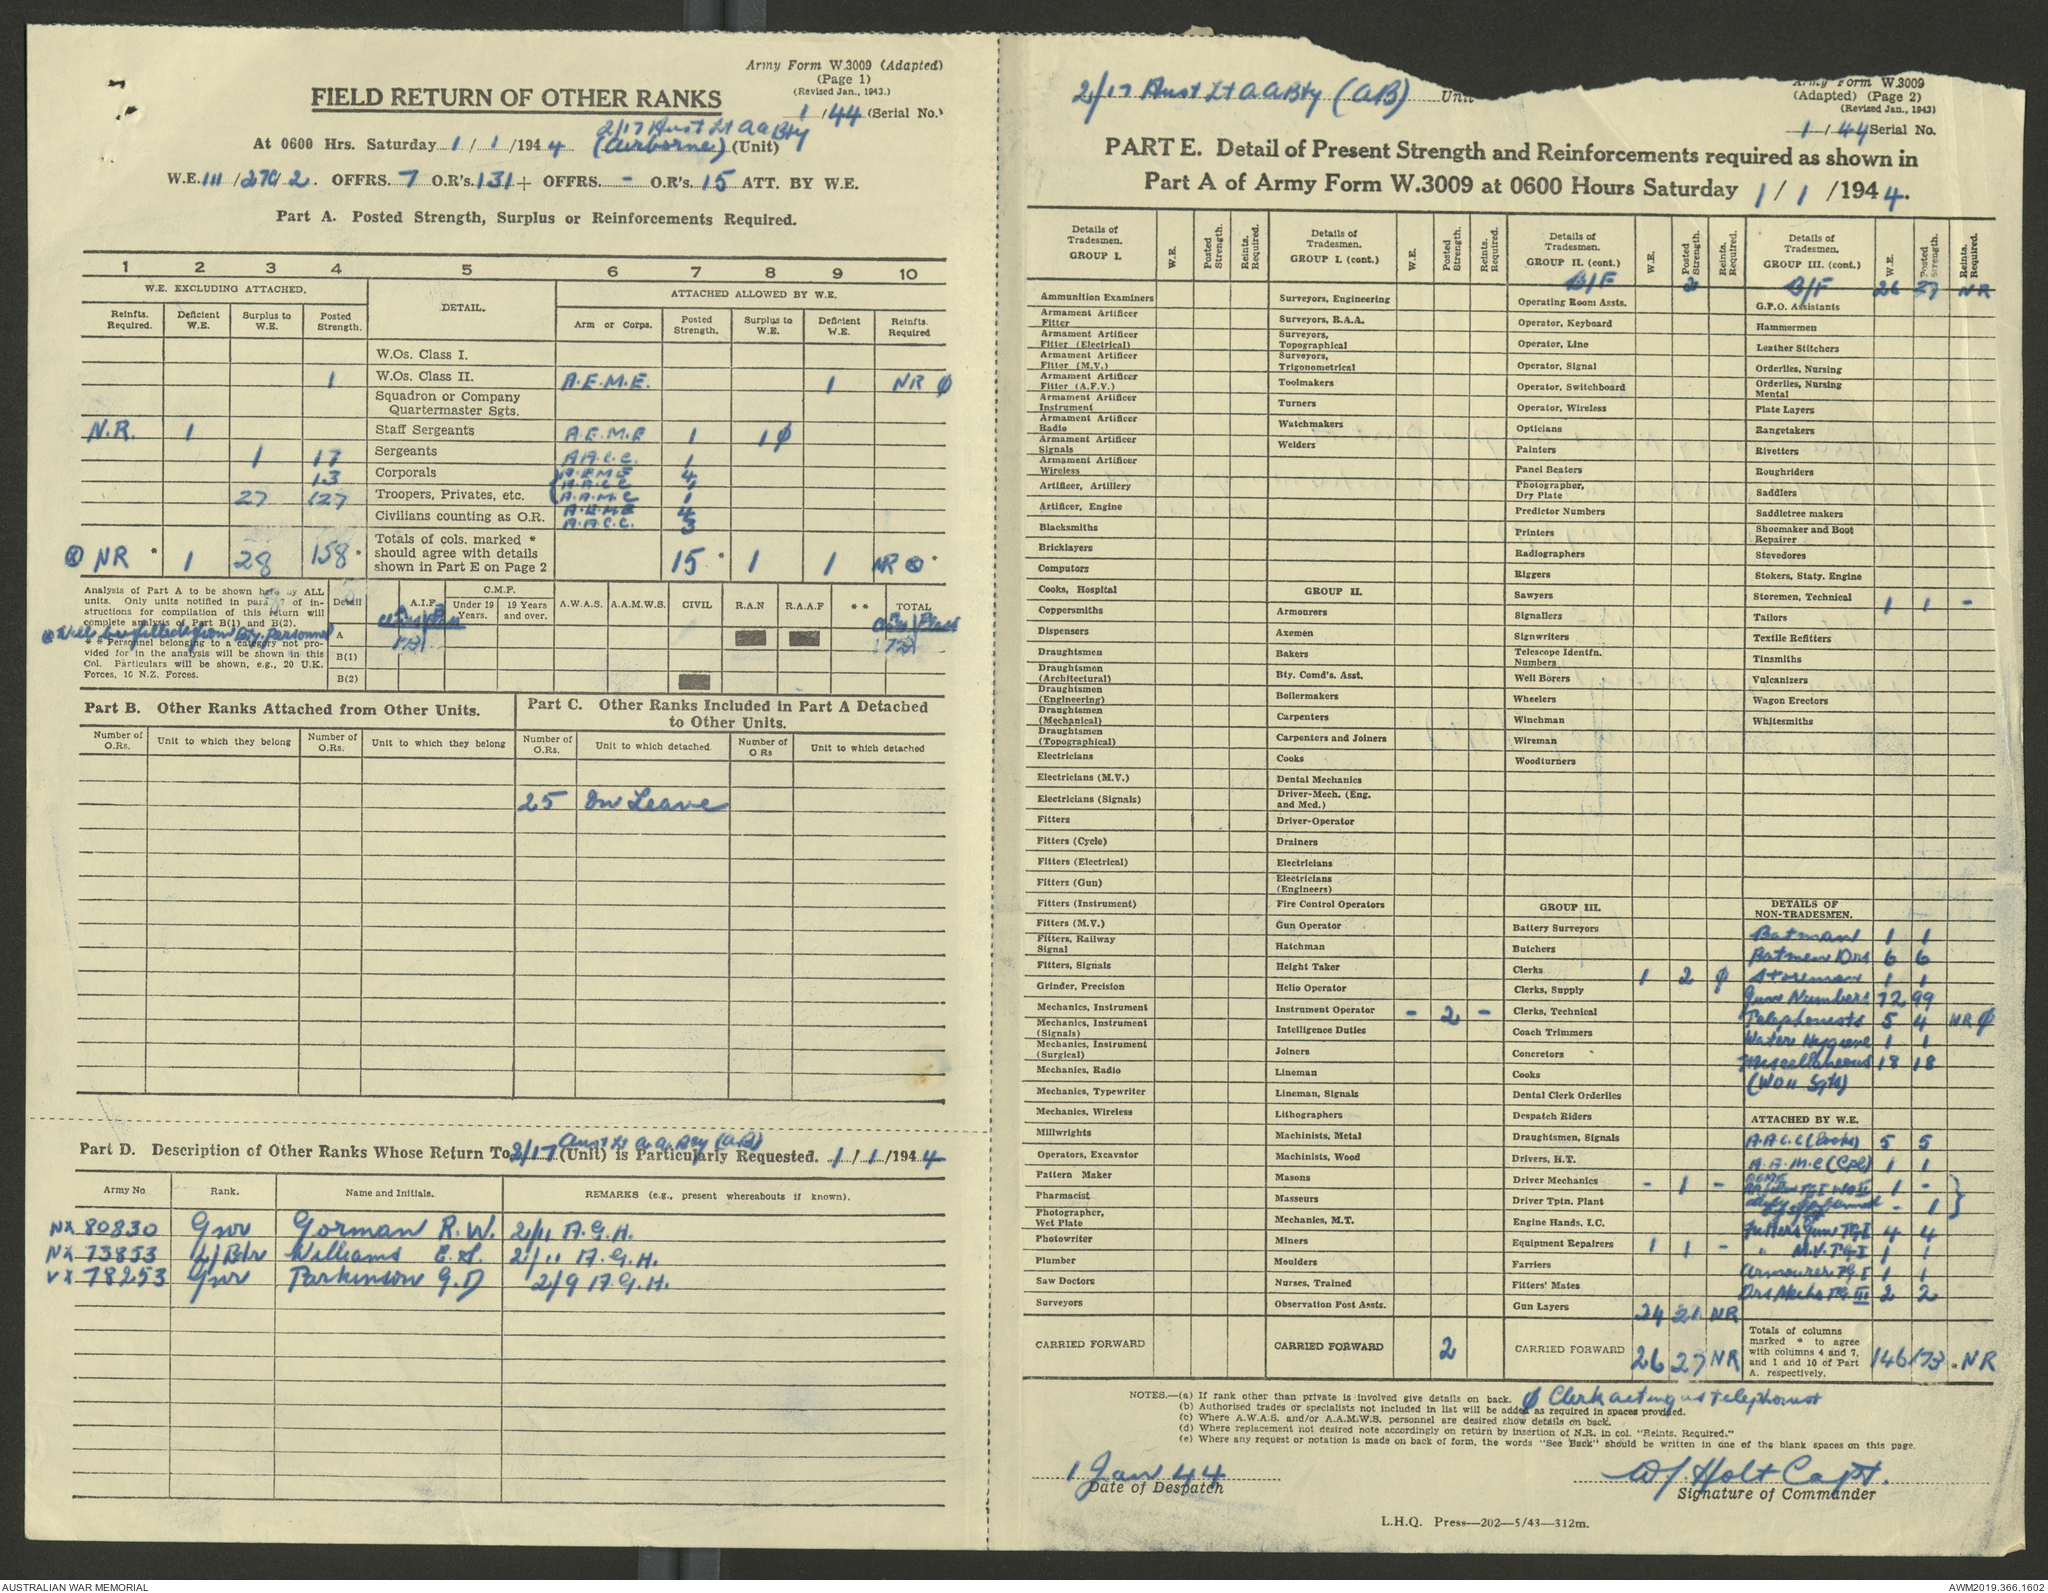 Army Form W.3009 (Adapted)
(Page 1)
(Revised Jan., 1943.)
FIELD RETURN OF OTHER RANKS
1 / 44 (Serial No.)
2/17 Aust Lt A A Bty
At 0600 Hrs. Saturday 1 / 1 / 1944 (Airborne) (Unit)
W.E. 111 / 27C / 2. OFFRS. 7 O.R's. 131 + OFFRS. - O.R's. 15 ATT. BY W.E.
Part A. Posted Strength, Surplus or Reinforcements Required.
1 2 3 4 5 6 7 8 9 10
W.E. EXCLUDING ATTACHED. DETAIL. ATTACHED ALLOWED BY W.E.
Reinfts. Required. Deficient W.E. Surplus to W.E. Posted Strength. Arm or Corps. Posted Strength. Surplus to W.E. Deficient W.E. Reinfts. Required
W.Os. Class I.
1 W.Os. Class II. A.E.M.E. 1 NR ø
Squadron or Company Quartermaster Sgts.
N.R. 1 Staff Sergeants A.E.M.E 1 1 ø
1 17 Sergeants A.A.C.C. 1
13 Corporals A.E.M.E 4
A.A.C.C 1
27 127 Troopers, Privates, etc. A.A.M.C 1
Civilians counting as O.R. A.E.M.E 4
A.A.C.C. 3
NR * 1 28 158 * Totals of cols. marked * should agree with details shown in Part E on Page 2 15 * 1 1 NR *
Analysis of Part A to be shown here by ALL units. Only units notified in para of instructions for compilation of this return will complete analysis of Part B(1) and B(2).
Will be filled from Bty. Personnel
* * Personnel belonging to a category not provided for in the analysis will be shown in this Col. Particulars will be shown, e.g., 20 U.K. Forces, 10 N.Z. Forces.
Detail A.I.F. C.M.F. Under 19 Years. 19 Years and over. A.W.A.S. A.A.M.W.S. CIVIL R.A.N R.A.A.F * * TOTAL
A 173 173
B(1)
B(2)
Part B. Other Ranks Attached from Other Units.
Number of O.Rs. Unit to which they belong Number of O.Rs. Unit to which they belong
Part C. Other Ranks Included in Part A Detached to Other Units.
Number of O.Rs. Unit to which detached. Number of O Rs Unit to which detached
25 On Leave
Aust Lt A. A. Bty (A.B)
Part D. Description of Other Ranks Whose Return To 2/17 (Unit) is Particularly Requested. 1 / 1 / 1944
Army No Rank. Name and Initials. REMARKS (e.g., present whereabouts if known).
NX 80830 Gnr Gorman R.W. 2/11 A.G.H.
NX 73853 L/Bdr Williams E.S. 2/11 A.G.H.
VX 78253 Gnr Parkinson G.D 2/9 A.G.H.
2/17 Aust Lt A A Bty (AB) Unit
Army Form W.3009
(Adapted) (Page 2)
(Revised Jan., 1943)
1 / 44 Serial No.
PART E. Detail of Present Strength and Reinforcements required as shown in
Part A of Army Form W.3009 at 0600 Hours Saturday 1 / 1 / 1944.
Details of Tradesmen. GROUP I. W.E. Posted Strength. Reints. Required.
Ammunition Examiners
Armament Artificer Fitter
Armament Artificer Fitter (Electrical)
Armament Artificer Fitter (M.V.)
Armament Artificer Fitter (A.F.V.)
Armament Artificer Instrument
Armament Artificer Radio
Armament Artificer Signals
Armament Artificer Wireless
Artificer, Artillery
Artificer, Engine
Blacksmiths
Bricklayers
Computors
Cooks, Hospital
Coppersmiths
Dispensers
Draughtsmen
Draughtsmen (Architectural)
Draughtsmen (Engineering)
Draughtsmen (Mechanical)
Draughtsmen (Topographical)
Electricians
Electricians (M.V.)
Electricians (Signals)
Fitters
Fitters (Cycle)
Fitters (Electrical)
Fitters (Gun)
Fitters (Instrument)
Fitters (M.V.)
Fitters, Railway Signal
Fitters, Signals
Grinder, Precision
Mechanics, Instrument
Mechanics, Instrument (Signals)
Mechanics, Instrument (Surgical)
Mechanics, Radio
Mechanics, Typewriter
Mechanics, Wireless
Millwrights
Operators, Excavator
Pattern Maker
Pharmacist
Photographer, Wet Plate
Photowriter
Plumber
Saw Doctors
Surveyors
CARRIED FORWARD
Details of Tradesmen. GROUP I. (cont.) W.E. Posted Strength. Reints. Required.
Surveyors, Engineering
Surveyors, R.A.A.
Surveyors, Topographical
Surveyors, Trigonometrical
Toolmakers
Turners
Watchmakers
Welders
GROUP II.
Armourers
Axemen
Bakers
Bty. Comd's. Asst.
Boilermakers
Carpenters
Carpenters and Joiners
Cooks
Dental Mechanics
Driver-Mech. (Eng. and Med.)
Driver-Operator
Drainers
Electricians
Electricians (Engineers)
Fire Control Operators
Gun Operator
Hatchman
Height Taker
Helio Operator
Instrument Operator - 2 -
Intelligence Duties
Joiners
Lineman
Lineman, Signals
Lithographers
Machinists, Metal
Machinists, Wood
Masons
Masseurs
Mechanics, M.T.
Miners
Moulders
Nurses, Trained
Observation Post Assts.
CARRIED FORWARD 2
Details of Tradesmen. GROUP II. (cont.) W.E. Posted Strength. Reints. Required.
B/F 2
Operating Room Assts.
Operator, Keyboard
Operator, Line
Operator, Signal
Operator, Switchboard
Operator, Wireless
Opticians
Painters
Panel Beaters
Photographer, Dry Plate
Predictor Numbers
Printers
Radiographers
Riggers
Sawyers
Signallers
Signwriters
Telescope Identfn. Numbers
Well Borers
Wheelers
Winchman
Wireman
Woodturners
GROUP III.
Battery Surveyors
Butchers
Clerks 1 2 ø
Clerks, Supply
Clerks, Technical
Coach Trimmers
Concretors
Cooks
Dental Clerk Orderlies
Despatch Riders
Draughtsmen, Signals
Drivers, H.T.
Driver Mechanics - 1 -
Driver Tptn. Plant
Engine Hands, I.C.
Equipment Repairers 1 1 -
Farriers
Fitters' Mates
Gun Layers 24 21 NR
CARRIED FORWARD 26 27 NR
Details of Tradesmen. GROUP III. (cont.) W.E. Posted Strength. Reints. Required.
B/F 26 27 NR
G.P.O. Assistants
Hammermen
Leather Stitchers
Orderlies, Nursing
Orderlies, Nursing Mental
Plate Layers
Rangetakers
Rivetters
Roughriders
Saddlers
Saddletree makers
Shoemaker and Boot Repairer
Stevedores
Stokers, Staty. Engine
Storemen, Technical 1 1 -
Tailors
Textile Refitters
Tinsmiths
Vulcanizers
Wagon Erectors
Whitesmiths
DETAILS OF NON-TRADESMEN.
Batman 1 1
Batmen Drs 6 6
Storeman 1 1
Gun Numbers 72 99
Telephonists 5 4 NR ø
Water Hygiene 1 1
Miscellaneous 18 18
(WO II Sgts)
ATTACHED BY W.E.
A.A.C.C (Cooks) 5 5
A.A.M.C (Cpl) 1 1
AEME WO II 1 -
- 1
Fitters Gun TG I 4 4
" M.V. TG I 1 1
Armourer TG I 1 1
Drs Mechs TG III 2 2
Totals of columns marked * to agree with columns 4 and 7, and 1 and 10 of Part A. respectively. 146 173 * NR
NOTES.—(a) If rank other than private is involved give details on back. ø Clerk acting as telephonist
(b) Authorised trades or specialists not included in list will be added as required in spaces provided.
(c) Where A.W.A.S. and/or A.A.M.W.S. personnel are desired show details on back.
(d) Where replacement not desired note accordingly on return by insertion of N.R. in col. "Reints. Required."
(e) Where any request or notation is made on back of form, the words "See Back" should be written in one of the blank spaces on this page.
1 Jan 44
Date of Despatch
W J Holt Capt.
Signature of Commander
L.H.Q. Press—202—5/43—312m.
AUSTRALIAN WAR MEMORIAL
AWM2019.366.1602